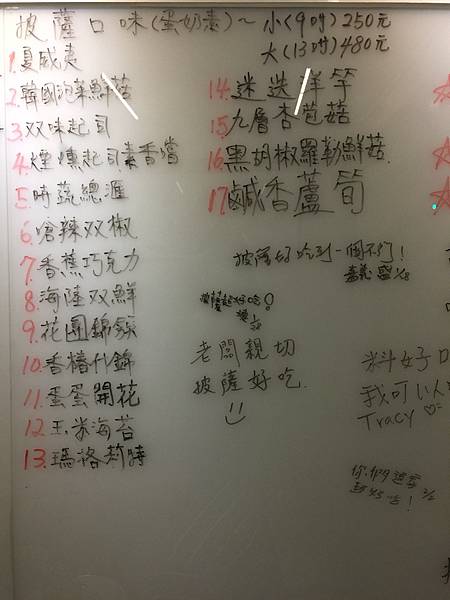 披薩口味(蛋奶素)~ 小(9吋)250元
大(13吋)480元
1.夏威夷
2.韓國泡菜鮮菇
3.双味起司
4.煙燻起司素香腸
5.時蔬總滙
6.嗆辣双椒
7.香蕉巧克力
8.海陸双鮮
9.花團錦簇
10.香椿什錦
11.蛋蛋開花
12.玉米海苔
13.瑪格莉特
14.迷迭洋芋
15.九層杏苞菇
16.黑胡椒羅勒鮮菇
17.鹹香蘆筍
披薩好吃到一個不行!
老闆親切
披薩好吃
料好口
我可以
Tracy